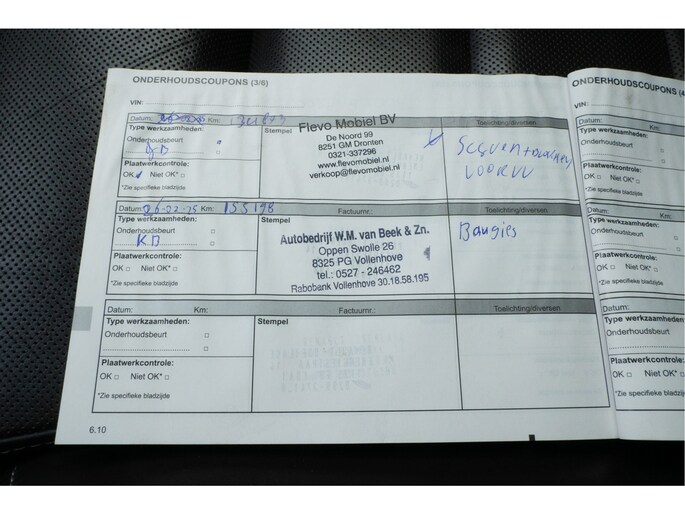 ONDERHOUDSCOUPONS (3/6)
VIN:
Datum: Km:
Type werkzaamheden:
Onderhoudsbeurt
GB
Plaatwerkcontrole:
OK Niet OK*
*Zie specifieke bladzijde
Stempel
Flevo Mobiel BV
De Noord 99
8251 GM Dronten
0321-337296
www.flevomobiel.nl
verkoop@flevomobiel.nl
Toelichting/diversen
VOORW
Datum: 26-02-15 Km: 155198
Type werkzaamheden:
Onderhoudsbeurt
KB
Plaatwerkcontrole:
OK Niet OK*
*Zie specifieke bladzijde
Stempel
Factuurnr.:
Autobedrijf W.M. van Beek & Zn.
Oppen Swolle 26
8325 PG Vollenhove
tel.: 0527 - 246462
Rabobank Vollenhove 30.18.58.195
Toelichting/diversen
Bougies
Datum: Km:
Type werkzaamheden:
Onderhoudsbeurt
Plaatwerkcontrole:
OK Niet OK*
*Zie specifieke bladzijde
Stempel
Factuurnr.:
Toelichting/diversen
6.10
ONDERHOUDSCOUPONS (4
VIN:
Datum:
Type werkzaamheden:
Onderhoudsbeurt
Plaatwerkcontrole:
OK Niet OK*
*Zie specifieke bladzijde
Datum:
Type werkzaamheden:
Onderhoudsbeurt
Plaatwerkcontrole:
OK Niet OK*
*Zie specifieke bladzijde
Datum:
Type werkzaamheden:
Onderhoudsbeurt
Plaatwerkcontrole:
OK Niet OK*
*Zie specifieke bladzijde